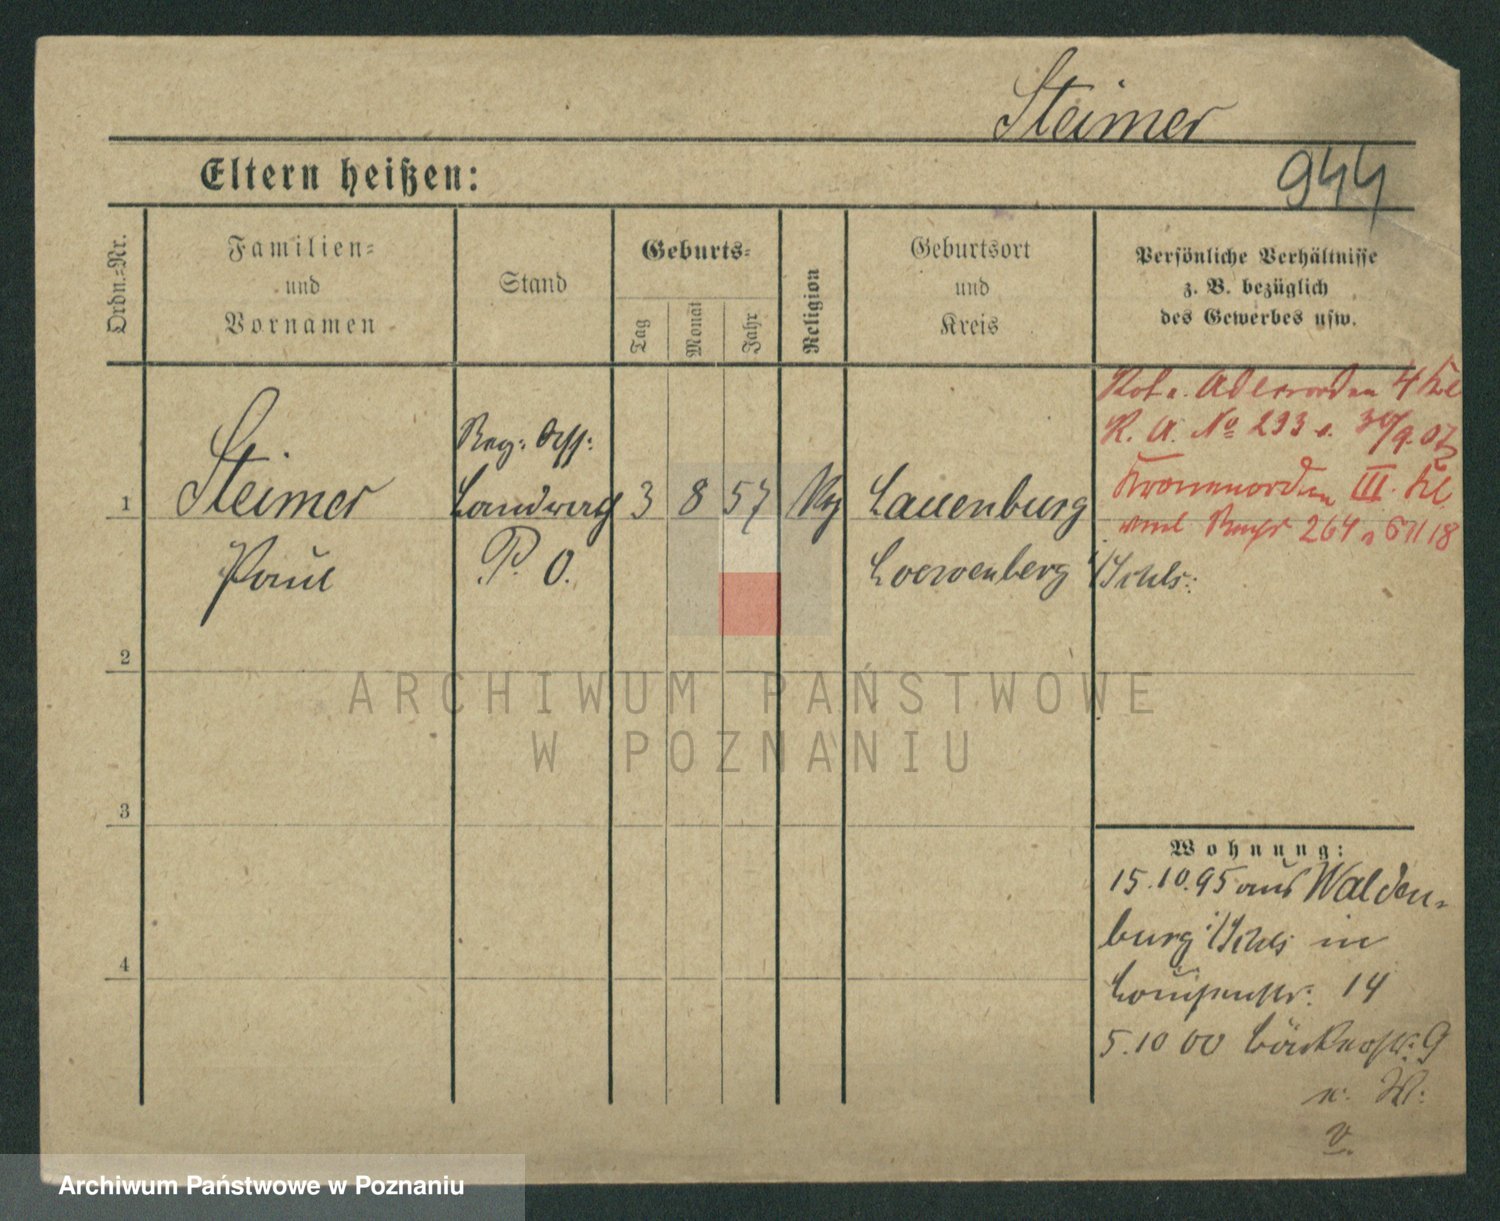 Steimer
Eltern heißen:
944
Ordn.-Nr.
Familien-
und
Vornamen
Stand
Geburts-
Tag
Monat
Jahr
Religion
Geburtsort
und
Kreis
Persönliche Verhältnisse
z. B. bezüglich
des Gewerbes usw.
1
Steimer
Paul
Reg: Ass:
Landwehr
P. O.
3 8 57
Lauenburg
Loewenberg i/Schls:
Rot. Adlerorden 4 Kl
R. A. No 233 v. 30/9.07
Kronenorden III. Kl.
264
18
2
3
4
Wohnung:
15.10.95 aus Walden-
burg i/Schls in
Louisenstr. 14
5.10 00 Bäckerstr. 9
n. W.
v.
ARCHIWUM PAŃSTWOWE
W POZNANIU
Archiwum Państwowe w Poznaniu